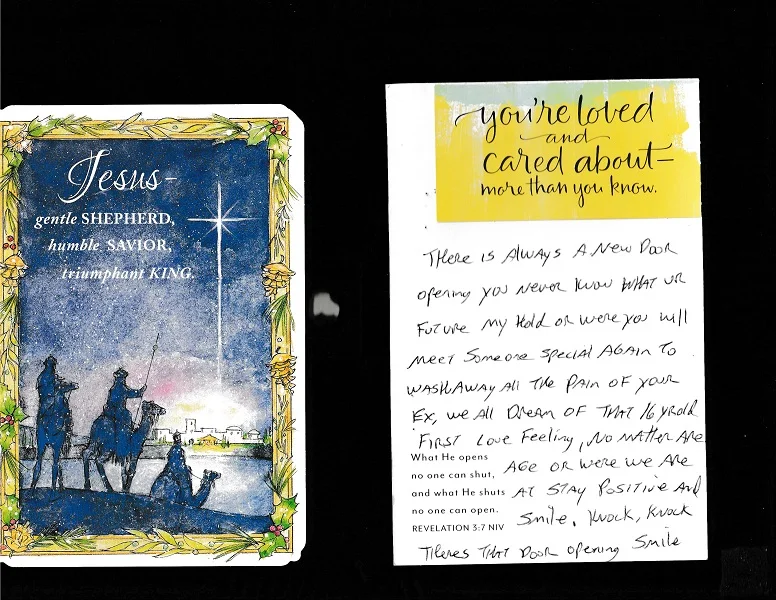 Jesus-
gentle SHEPHERD,
humble SAVIOR,
triumphant KING.
you're loved
and
cared about—
more than you know.
THere is Always A New Door
opening you never know WHAT ur
Future My Hold or were you will
meet Someone special Again To
WASH Away All The Pain of your
Ex, we All Dream of THAT 16 yrold
First Love Feeling, No matter Are
What He opens
no one can shut,
and what He shuts
no one can open.
REVELATION 3:7 NIV
Age or were we Are
At Stay Positive And
Smile. Knock, Knock
Theres That Door opening Smile